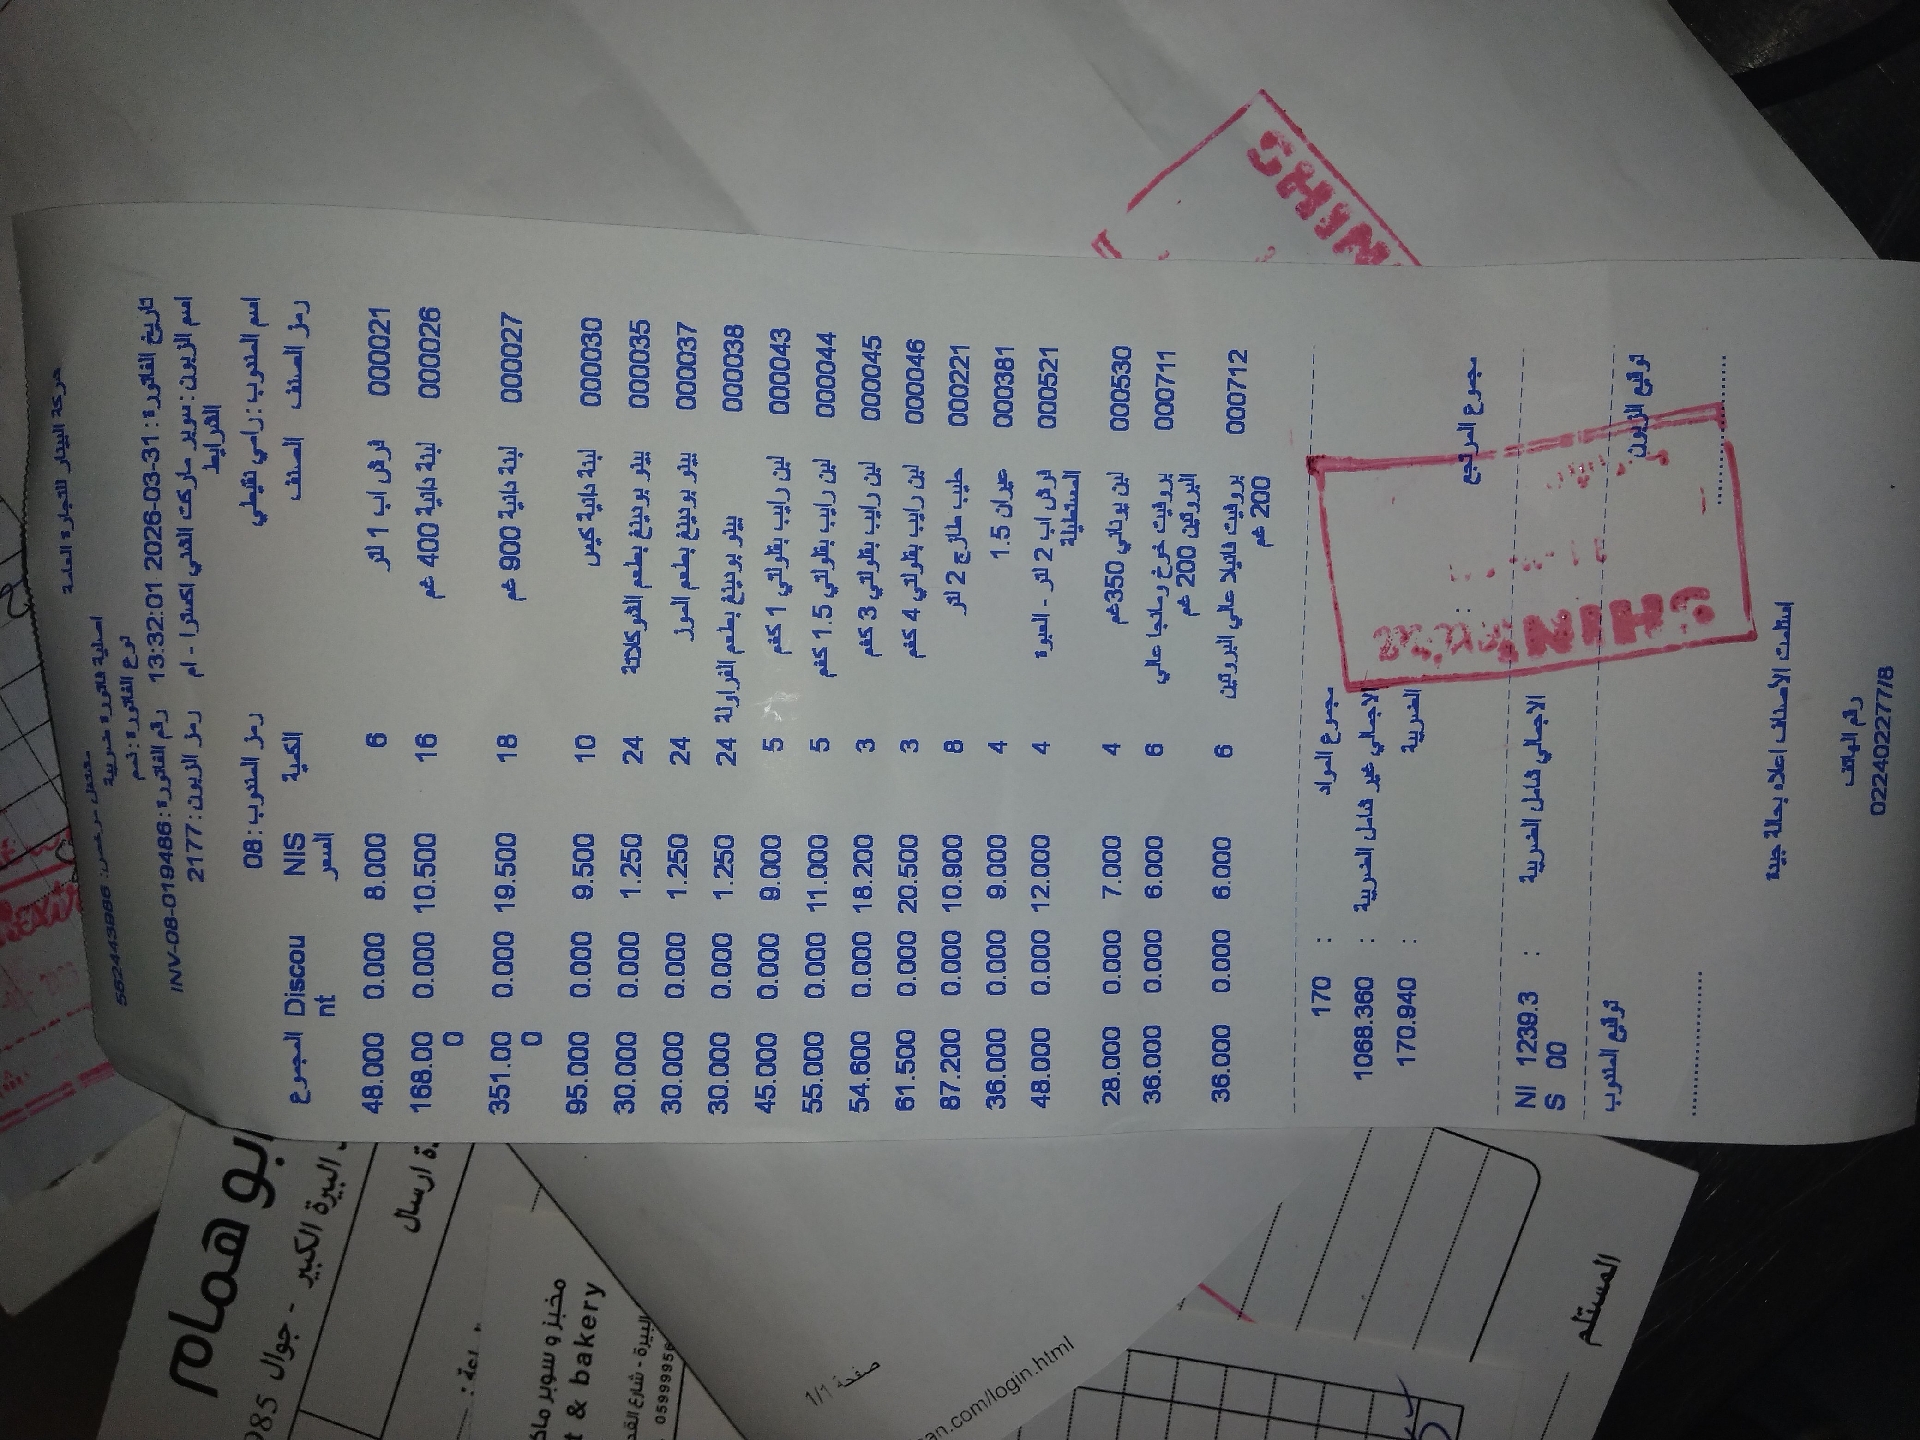 شركة البيدار للتجارة العامة
مشتغل مرخص: 562443986
اصلية فاتورة ضريبية
نوع الفاتورة: ذمم
تاريخ الفاتورة: 2026-03-31 13:32:01 رقم الفاتورة: INV-08-019486
اسم الزبون: سوبر ماركت الشني اكسترا - ام الشرايط رمز الزبون: 2177
اسم المندوب: رامي شقيطي رمز المندوب: 08
رمز الصنف الصنف الكمية NIS السعر Discount المجموع
000021 فرش اب 1 لتر 6 8.000 0.000 48.000
000026 لبنة دانية 400 غم 16 10.500 0.000 168.000
000027 لبنة دانية 900 غم 18 19.500 0.000 351.000
000030 لبنة دانية كيس 10 9.500 0.000 95.000
000035 بيتو بودينغ بطعم الشوكلاتة 24 1.250 0.000 30.000
000037 بيتو بودينغ بطعم الموز 24 1.250 0.000 30.000
000038 بيتو بودينغ بطعم الفراولة 24 1.250 0.000 30.000
000043 لبن رايب بقلولتي 1 كغم 5 9.000 0.000 45.000
000044 لبن رايب بقلولتي 1.5 كغم 5 11.000 0.000 55.000
000045 لبن رايب بقلولتي 3 كغم 3 18.200 0.000 54.600
000046 لبن رايب بقلولتي 4 كغم 3 20.500 0.000 61.500
000221 حليب طازج 2 لتر 8 10.900 0.000 87.200
000381 عيران 1.5 4 9.000 0.000 36.000
000521 فرش اب 2 لتر - العبوة المستطيلة 4 12.000 0.000 48.000
000530 لبن يوناني 350غم 4 7.000 0.000 28.000
000711 بروفيت خوخ ومانجا عالي البروتين 200 غم 6 6.000 0.000 36.000
000712 بروفيت فانيلا عالي البروتين 200 غم 6 6.000 0.000 36.000
مجموع المواد : 170
الاجمالي غير شامل الضريبة : 1068.360
الضريبة : 170.940
مجموع المرتجع :
الاجمالي شامل الضريبة : NIS 1239.300
توقيع الزبون توقيع المندوب
استلمت الأصناف اعلاه بحالة جيدة
رقم الهاتف
022402277/8
SHINI
SHIN
ابو همام
البيرة الكبير - جوال 085
ارسال
مخبز و سوبر
& bakery
البيرة - شارع
صفحة 1/1
an.com/login.html
المستلم